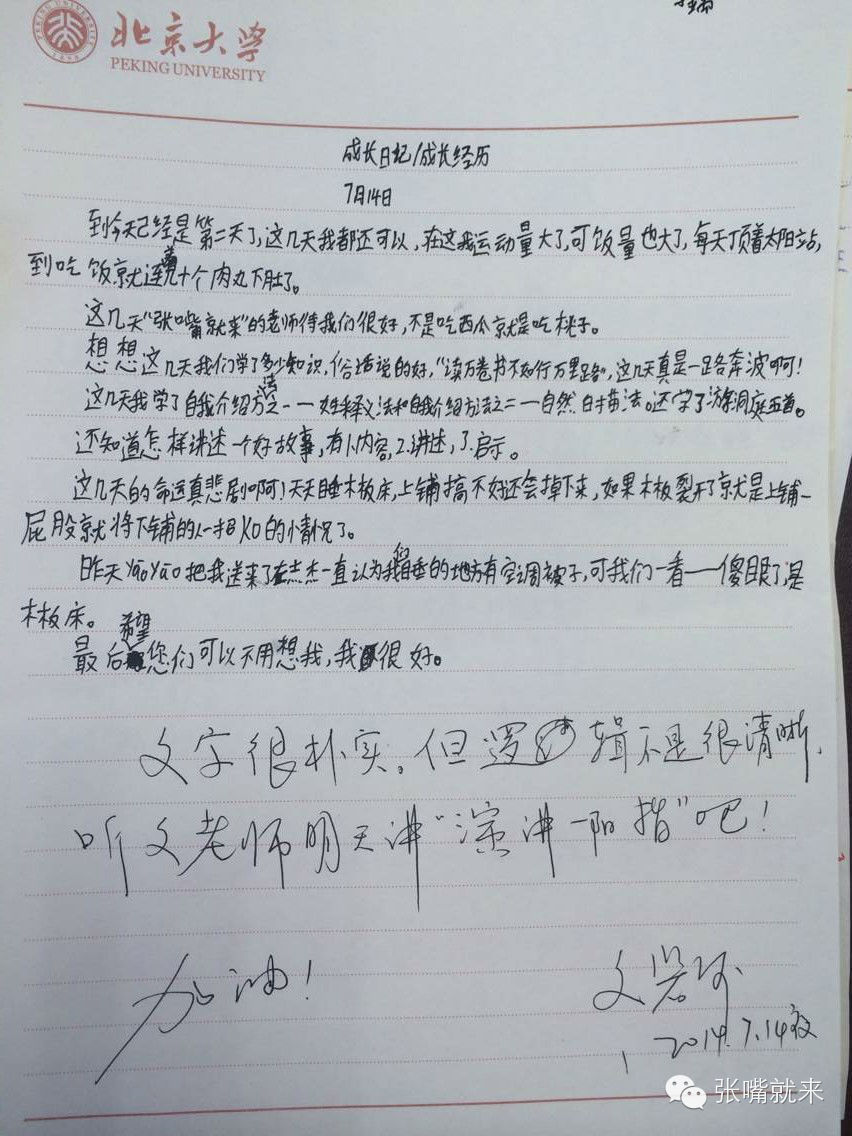 北京大学
PEKING UNIVERSITY
成长日记/成长经历
7月14日
到今天已经是第二天了,这几天我都还可以,在这我运动量大了,可饭量也大了,每天顶着太阳站,
到吃饭就连着几十个肉丸下肚了。
这几天“张嘴就来”的老师待我们很好,不是吃西瓜就是吃桃子。
想想这几天我们学了多少知识,俗话说的好,“读万卷书不如行万里路”,这几天真是一路奔波啊!
这几天我学了自我介绍方法之一——姓名释义法和自我介绍方法之二——自然白描法。还学了游洞庭五首。
还知道怎样讲述一个好故事,有1.内容,2.讲述,3.启示。
这几天的命运真悲剧啊!天天睡木板床,上铺搞不好还会掉下来,如果木板裂开了就是上铺一
屁股就将下铺的人一招KO的情况了。
昨天YāoYāo把我送来了 杰一直认为我们睡的地方有空调被子,可我们一看——傻眼了,是
木板床。
最后希望您们可以不用想我,我很好。
文字很朴实。但逻辑不是很清晰,
听文老师明天讲“演讲一阳指”吧!
加油!
文
2014.7.14夜
张嘴就来